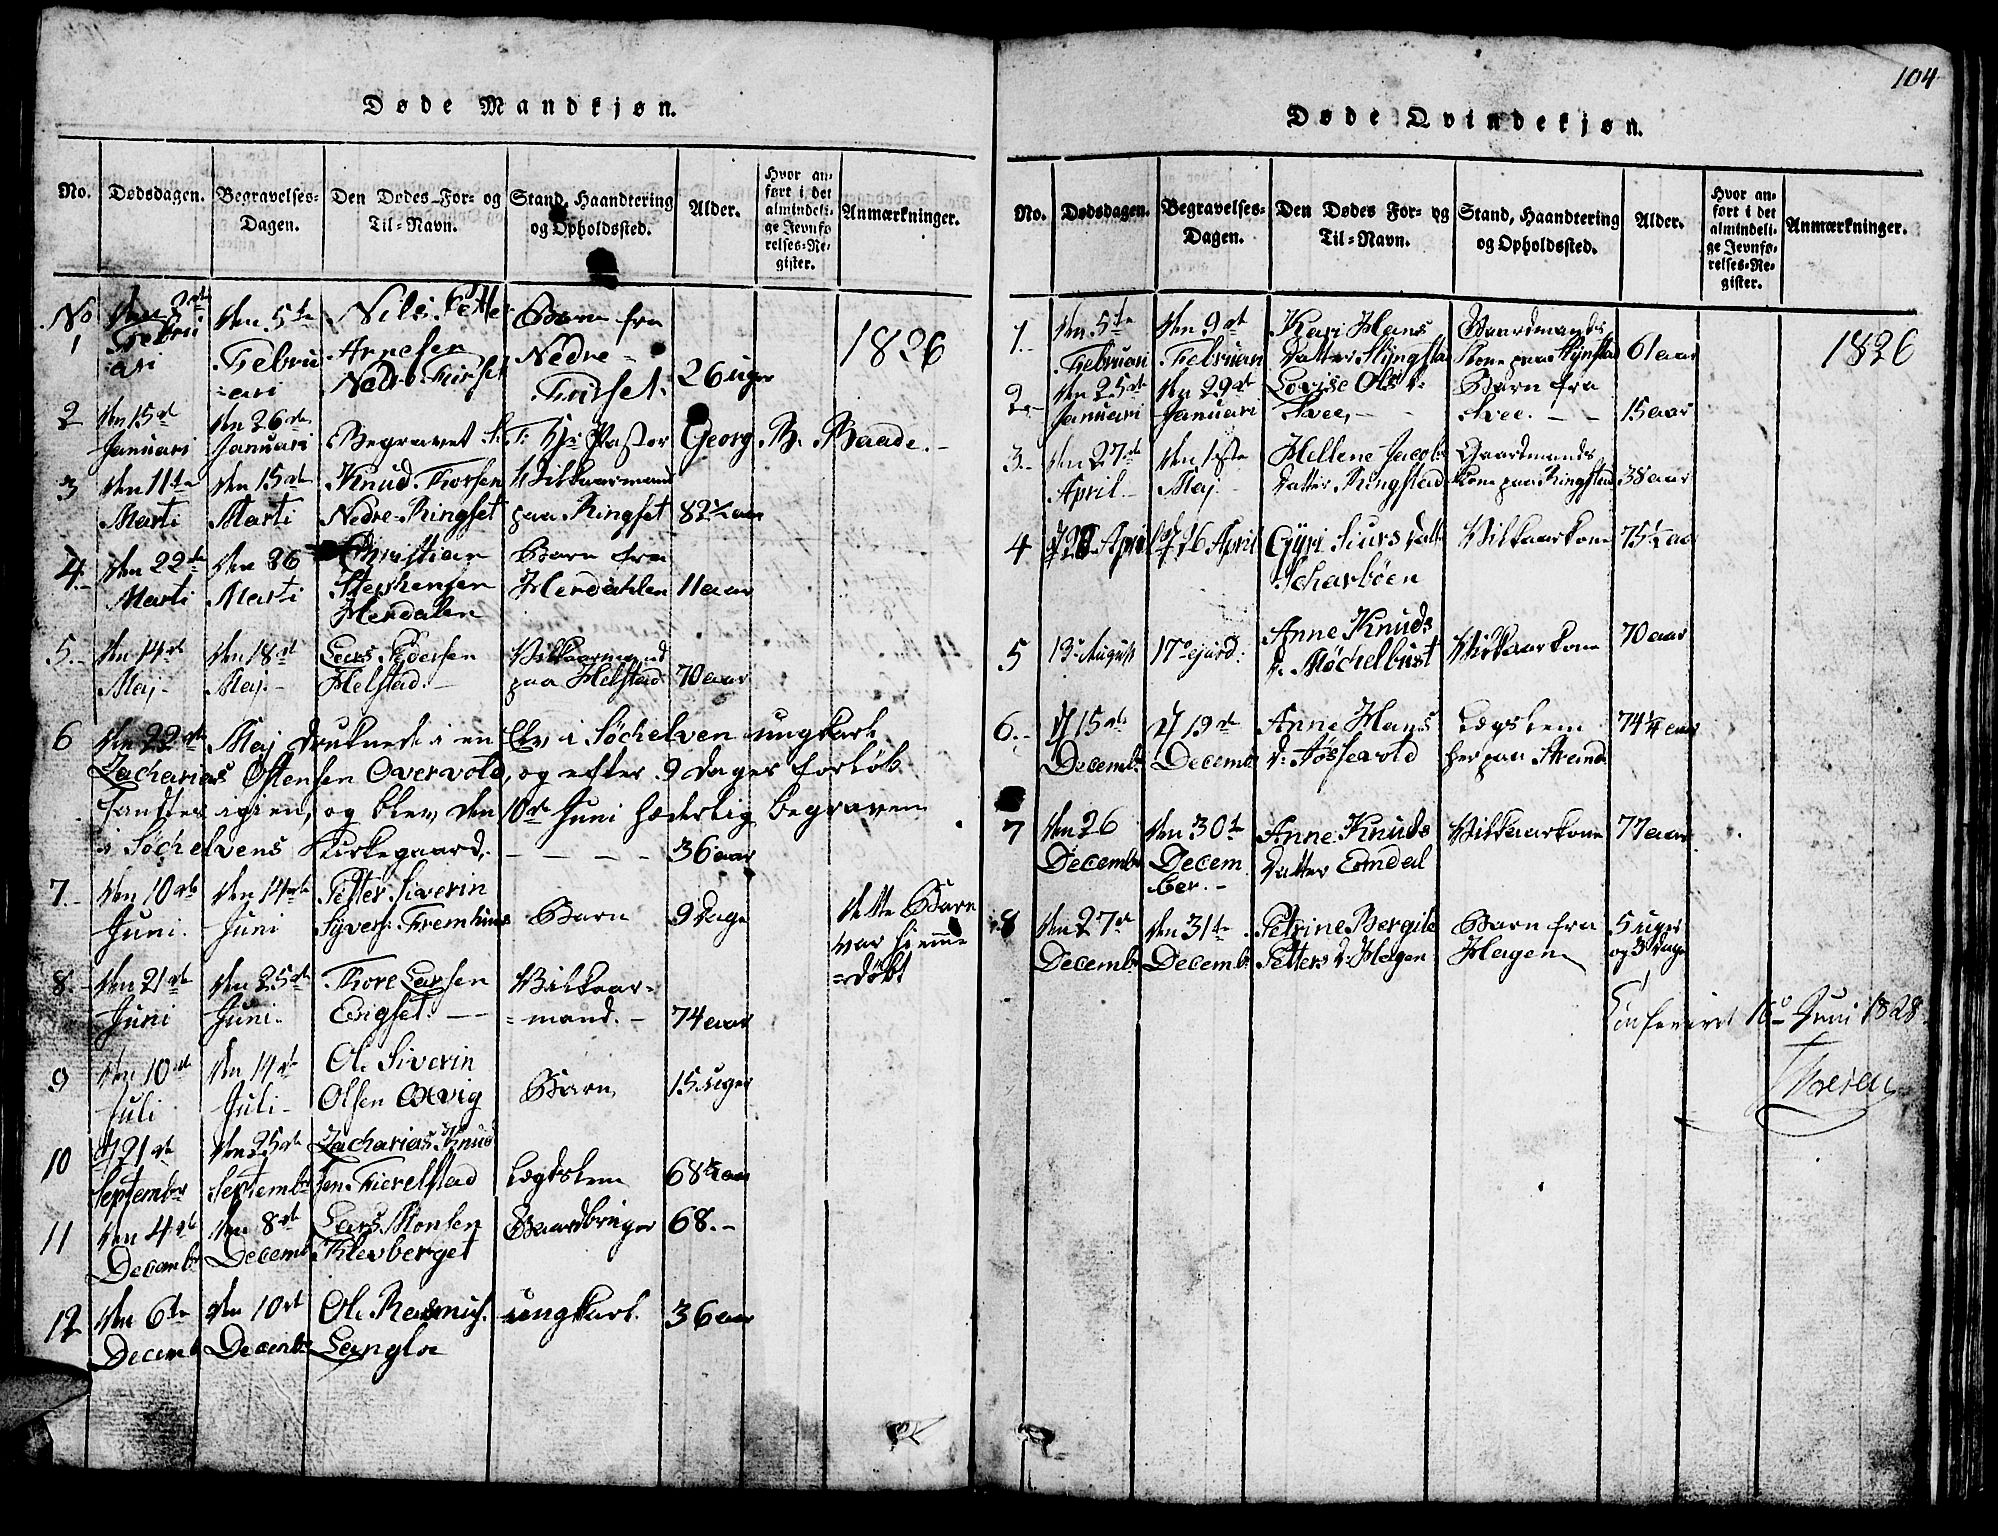 104
Døde Mandkjøn.
No. Dødsdagen. Begravelses-Dagen. Den Dødes For- og Til-Navn. Stand, Haandtering og Opholdssted. Alder. Hvor anført i det almindelige Jevnførelses-Register. Anmærkninger.
No 1 den Februari den 5te Februari Nils Arnesen Nedre Barn fra Nedre 26 uger 1826
2 den 15de Januari den 26de Januari Begravet S: T: Hr: Pastor Georg B. Baade.
3 den 11te Marti den 15de Marti Knud Thorsen Nedre-Ringset Vilkaarmand paa Ringset 82½ aar
4 den 22de Marti den 26 Marti Christian Stephensen Herdalen Barn fra Herdahlen 11 aar
5 den 14de Maj den 18de Maj Lars Pedersen Helstad Vilkaarmand paa Helstad 70 aar
6 den 22de Maj druknede i en Elv i Søchelven ungkarl
Zacharias Ostensen Overvold, og efter 9 dages forløb
fandtes igien, og blev den 10de Juni hæderlig begraven
i Søchelvens Kirkegaard. 36 aar
7 den 10de Juni den 14de Juni Petter Siverin Syvers: Fremhuus Barn 9 Dage dette Barn var hiemme=døbt
8 den 21de Juni den 25de Juni Thore Larsen Eligset Vilkaar=mand 74 aar
9 den 10de Juli den 14de Juli Ole Siverin Olsen Barn 15 uger
10 d 21de September den 25de Septembr Zacharias Knudsen Lægdslem 68½ aar
11 den 4de Decembr den 8de Decemb Lars Monsen Klevberget Gaardbruger 68
12 den 6te Decemb den 10de Decemb Ole Rasmus: Langloe ungkarl 36 aar
Døde Qvindekjøn.
No. Dødsdagen. Begravelses-Dagen. Den Dødes For- og Til-Navn. Stand, Haandtering og Opholdssted. Alder. Hvor anført i det almindelige Jevnførelses-Register. Anmærkninger.
1 den 5te Februari den 9de Februari Kari Hans Datter Gaardmands Kone paa 61 aar 1826
2 den 25de Januari den 29de Januari Lovise Ols d: Svee Barn fra Svee 15 aar
3 den 27de April den 1ste Maj Hellene Jacobs Datter Ringstad Gaardmands Kone paa Ringstad 38 aar
4 April 26 April Gyri Siurs datt Scharbøen Vilkaarkone 75½ aar
5 13 August 17 ejusd: Anne Knuds d: Møchelbust Vilkaarkone 70 aar
6 d 15de Decembr d 19de Decemb Anne Hans d: Aassevold Lægslem her paa Strand 74¼ aar
7 den 26 Decembr den 30te December Anne Knuds Datter Emdal Vilkaarkone 77 aar
8 den 27de Decembr den 31te Decembr Petrine Bergite Petters d: Hagen Barn fra Hagen 5 uger og 3 dage
16 Juni 1828